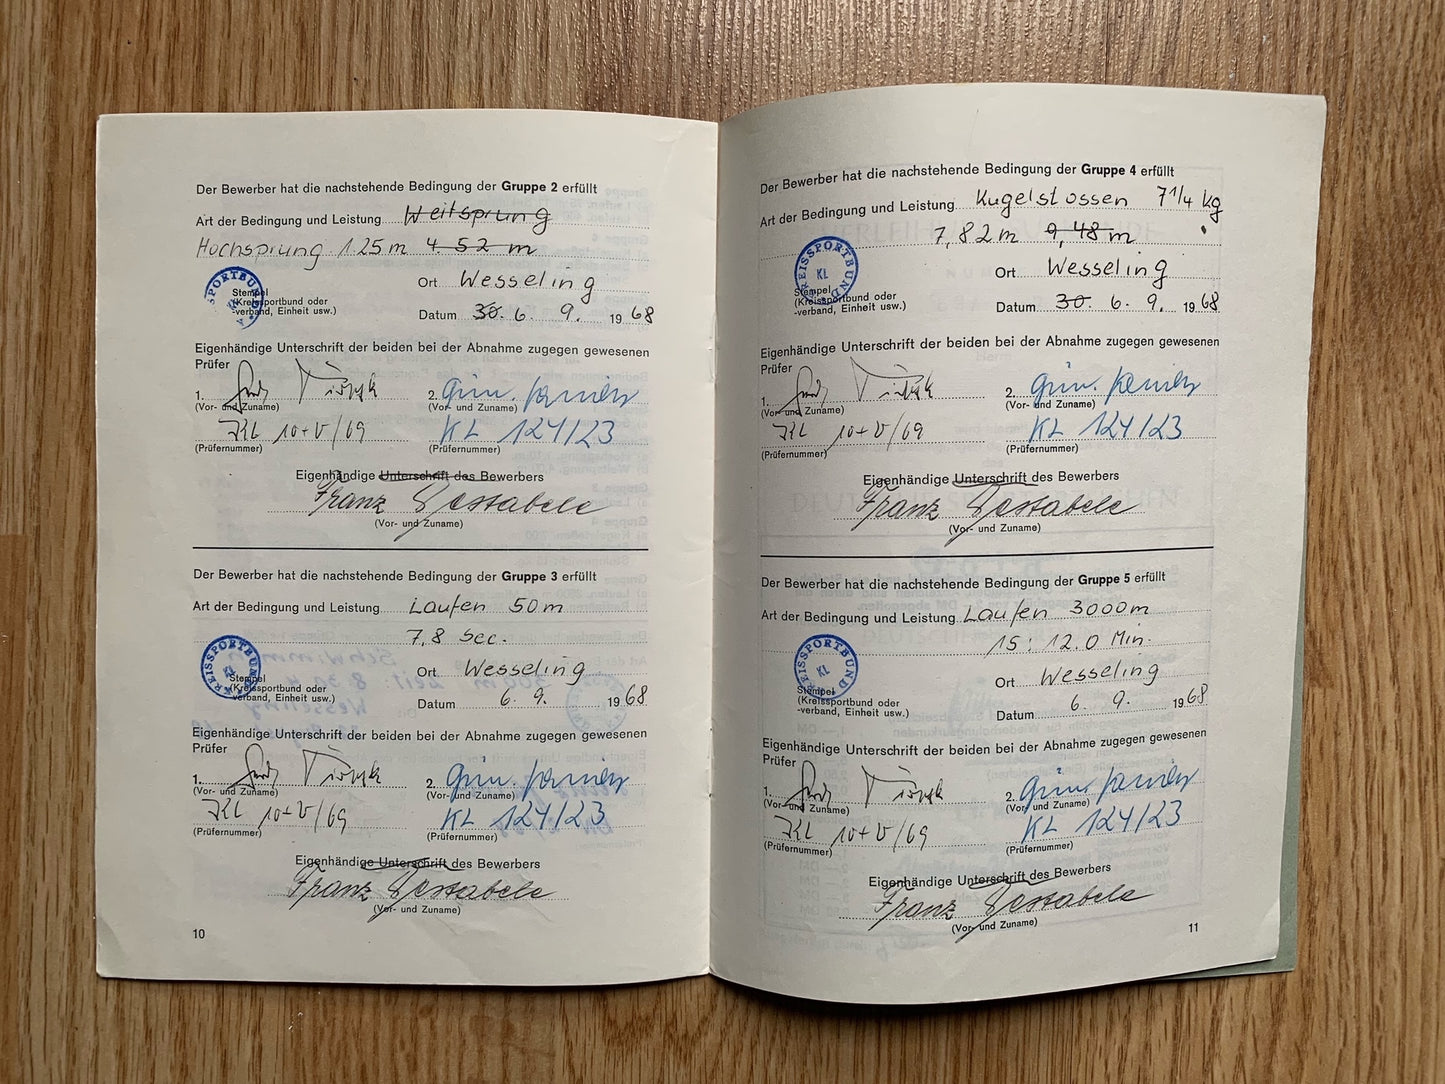 Der Bewerber hat die nachstehende Bedingung der Gruppe 2 erfüllt
Art der Bedingung und Leistung Weitsprung
Hochsprung 1.25 m 4 52 m
Ort Wesseling
SPORTBUND
Stempel
(Kreissportbund oder
-verband, Einheit usw.)
Datum 30. 6. 9. 1968
Eigenhändige Unterschrift der beiden bei der Abnahme zugegen gewesenen
Prüfer
1.
2.
(Vor- und Zuname)
(Vor- und Zuname)
KL 10+V/69
KL 124/23
(Prüfernummer)
(Prüfernummer)
Eigenhändige Unterschrift des Bewerbers
Franz
(Vor- und Zuname)
Der Bewerber hat die nachstehende Bedingung der Gruppe 3 erfüllt
Art der Bedingung und Leistung Laufen 50 m
7,8 Sec.
Ort Wesseling
KREISSPORTBUND KL
Stempel
(Kreissportbund oder
-verband, Einheit usw.)
Datum 6. 9. 1968
Eigenhändige Unterschrift der beiden bei der Abnahme zugegen gewesenen
Prüfer
1.
2.
(Vor- und Zuname)
(Vor- und Zuname)
KL 10+V/69
KL 124/23
(Prüfernummer)
(Prüfernummer)
Eigenhändige Unterschrift des Bewerbers
Franz
(Vor- und Zuname)
10
Der Bewerber hat die nachstehende Bedingung der Gruppe 4 erfüllt
Art der Bedingung und Leistung Kugelstossen 7 1/4 kg
7,82 m 9,48 m
Ort Wesseling
KREISSPORTBUND KL
Stempel
(Kreissportbund oder
-verband, Einheit usw.)
Datum 30. 6. 9. 1968
Eigenhändige Unterschrift der beiden bei der Abnahme zugegen gewesenen
Prüfer
1.
2.
(Vor- und Zuname)
(Vor- und Zuname)
KL 10+V/69
KL 124/23
(Prüfernummer)
(Prüfernummer)
Eigenhändige Unterschrift des Bewerbers
Franz
(Vor- und Zuname)
Der Bewerber hat die nachstehende Bedingung der Gruppe 5 erfüllt
Art der Bedingung und Leistung Laufen 3000 m
15:12.0 Min.
Ort Wesseling
KREISSPORTBUND KL
Stempel
(Kreissportbund oder
-verband, Einheit usw.)
Datum 6. 9. 1968
Eigenhändige Unterschrift der beiden bei der Abnahme zugegen gewesenen
Prüfer
1.
2.
(Vor- und Zuname)
(Vor- und Zuname)
KL 10+V/69
KL 124/23
(Prüfernummer)
(Prüfernummer)
Eigenhändige Unterschrift des Bewerbers
Franz
(Vor- und Zuname)
11